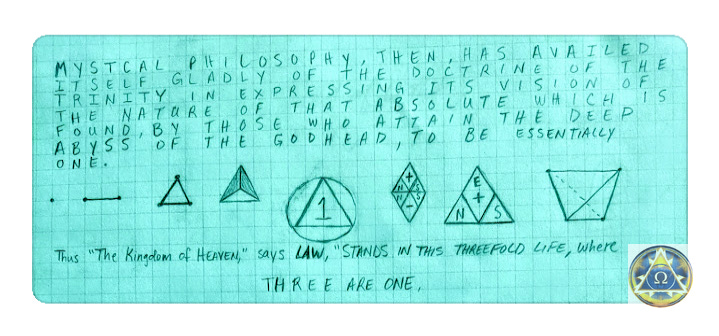 MYSTCAL PHILOSOPHY, THEN, HAS AVAILED
ITSELF GLADLY OF THE DOCTRINE OF THE
TRINITY IN EXPRESSING ITS VISION OF
THE NATURE OF THAT ABSOLUTE WHICH IS
FOUND, BY THOSE WHO ATTAIN THE DEEP
ABYSS OF THE GODHEAD, TO BE ESSENTIALLY
ONE.
1
+
N S
N S
-
E
+
N S
Thus "The Kingdom of HEAVEN," says LAW, "STANDS IN THIS THREEFOLD LIFE, where
THREE ARE ONE,
Ω